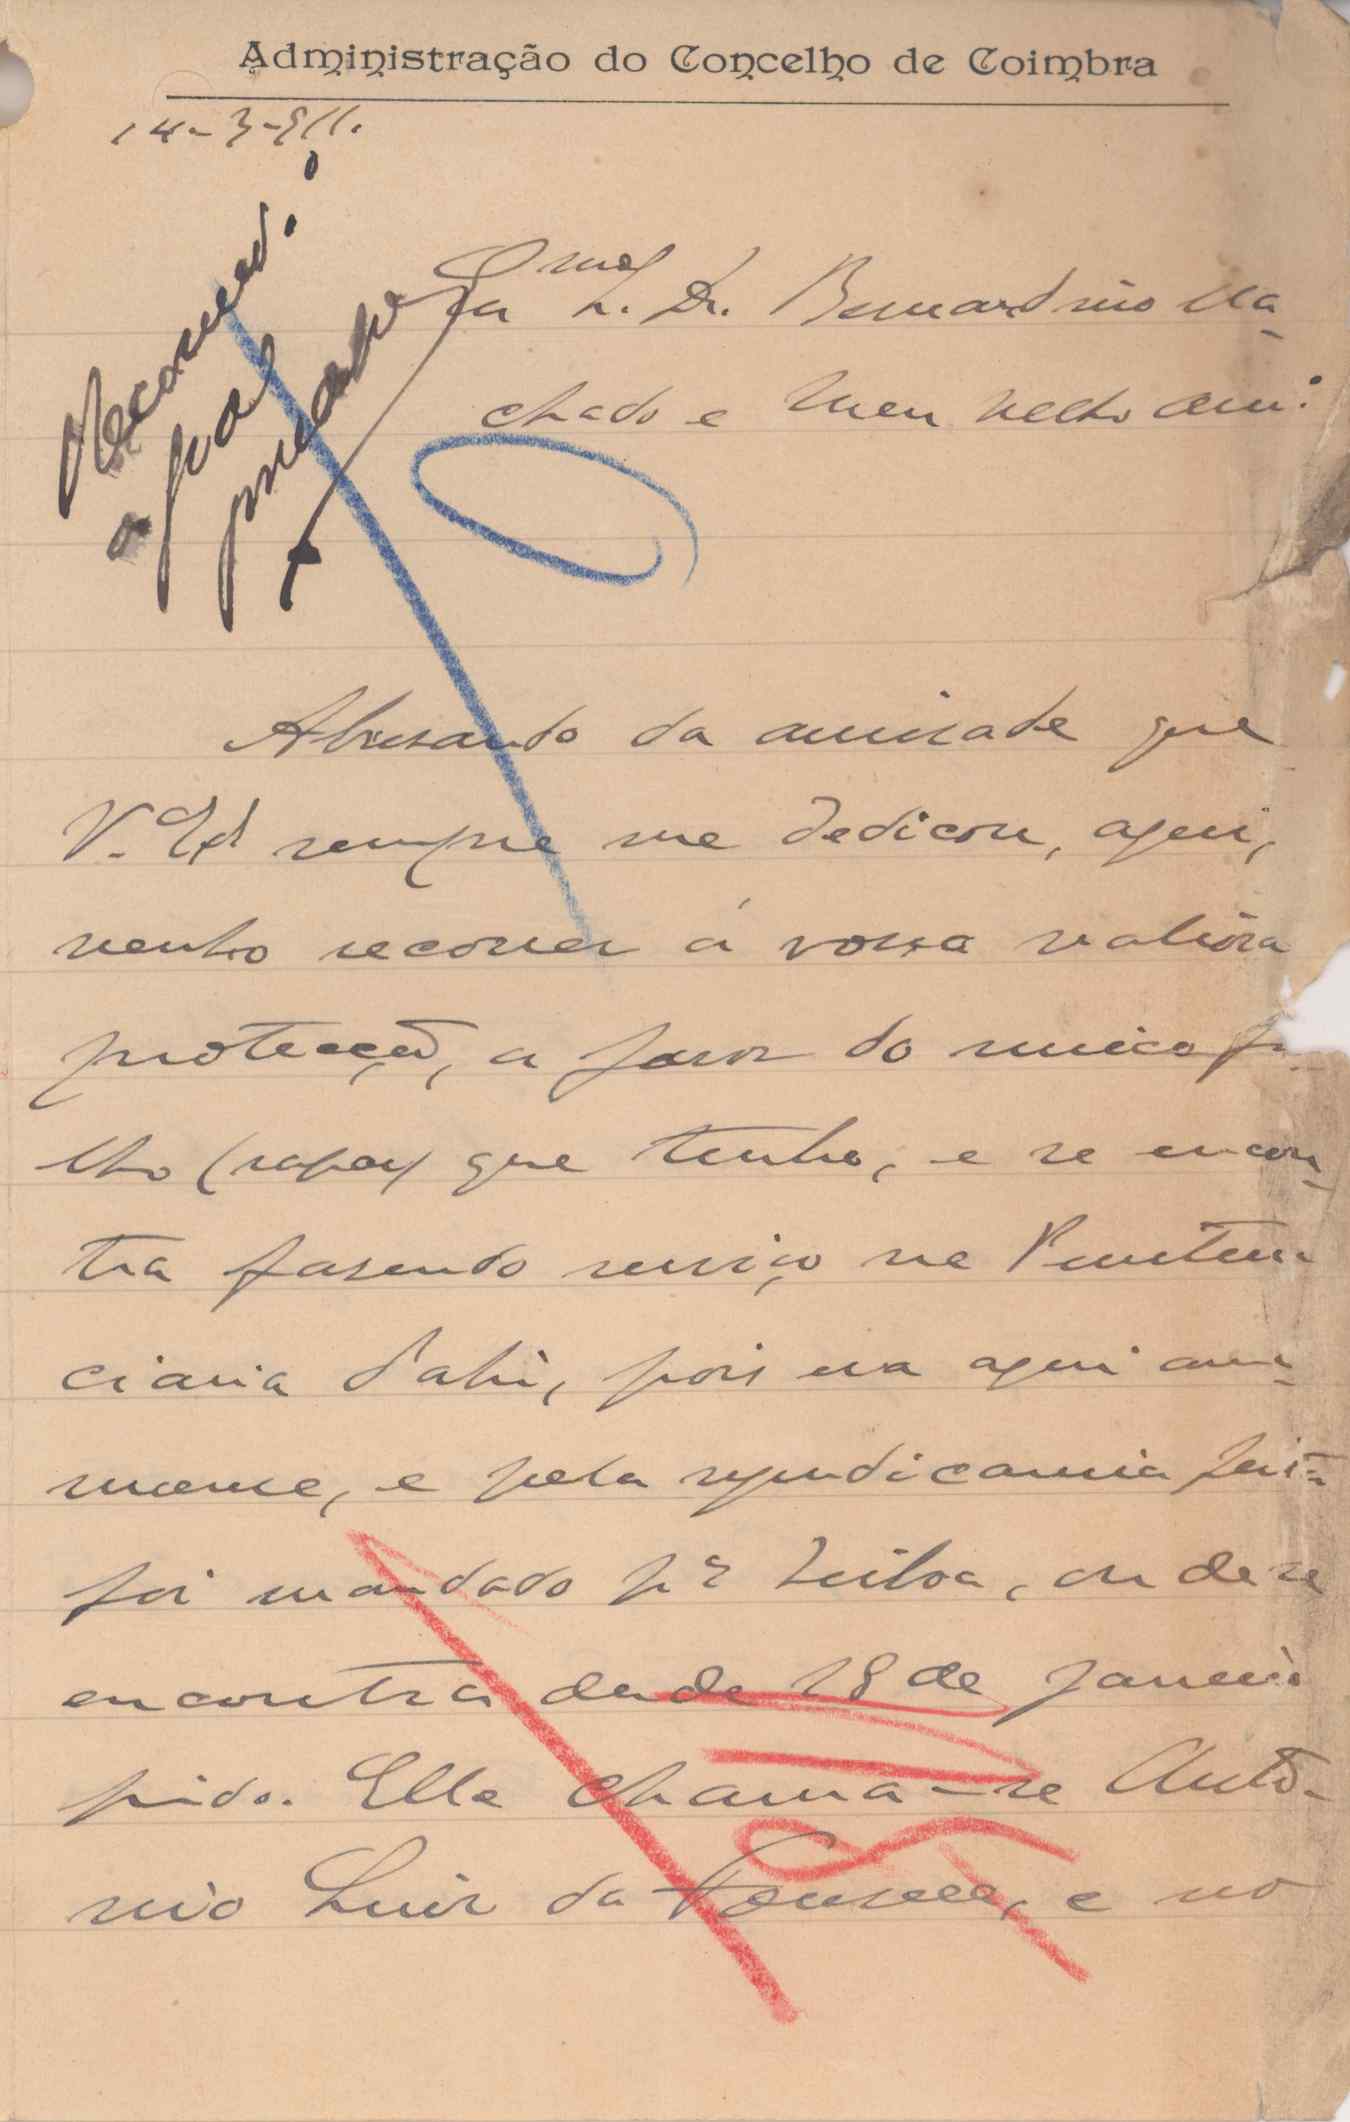 Administração do Concelho de Coimbra
14-3-911.
Exmo Sr. Dr. Bernardino Ma-
chado e meu velho ami:
Abusando da amisade que
V. Exª sempre me dedicou, aqui,
venho recorrer á vossa valiosa
protecção, a favor do unico fi-
lho (rapaz) que tenho, e se encon-
tra fasendo serviço na Peniten
ciaria d'ahi, pois era aqui
e pela syndicancia feita
foi mandado pª Lisboa, onde se
encontra desde 18 de Janeiro
pido. Elle chama-se Antó-
nio Luiz da Fonseca, e no